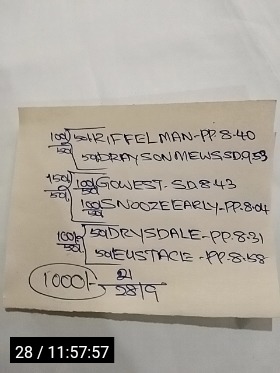 100/50 50/- RIFFELMAN-PP.8.40
50/- DRAYSONMEWS SD9.53
150/50 100/50 GOWEST-SD.8.43
100/50 SNOOZEEARLY-PP.8.04
100/50 50/- DRYSDALE-PP.8.31
50/- EUSTACE-PP.8.58
1000/-
28/9
28 / 11:57:57